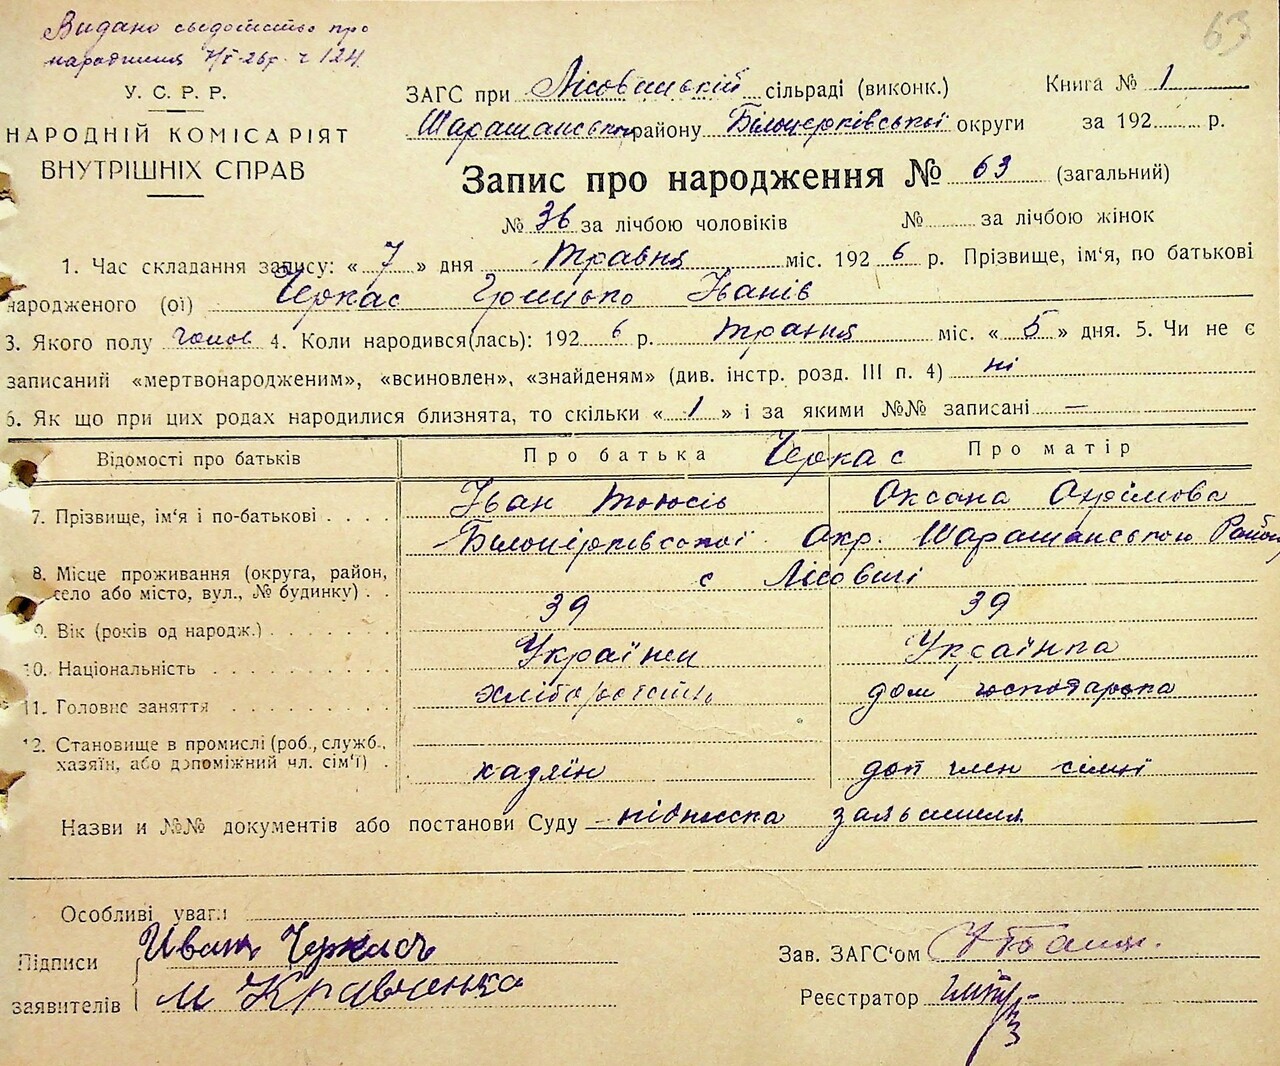 63
Видано свідоцтво про
народження 7/V-26р. ч 124
У. С. Р. Р.
НАРОДНІЙ КОМІСАРІЯТ
ВНУТРІШНІХ СПРАВ
ЗАГС при сільраді (виконк.) Книга № 1
району Білоцерківської округи за 192 р.
Запис про народження № 63 (загальний)
№ 36 за лічбою чоловіків № за лічбою жінок
1. Час складання запису: « 7 » дня травня міс. 192 6 р. Прізвище, ім'я, по батькові
народженого (ої) Черкас Грицько Іванів
3. Якого полу чолов 4. Коли народився(лась): 192 6 р. травня міс. « 5 » дня. 5. Чи не є
записаний «мертвонародженим», «всиновлен», «знайденям» (див. інстр. розд. III п. 4) ні
6. Як що при цих родах народилися близнята, то скільки « 1 » і за якими №№ записані —
Відомості про батьків Про батька Черкас Про матір
7. Прізвище, ім'я і по-батькові Іван Оксана
Окр. Район
8. Місце проживання (округа, район,
село або місто, вул., № будинку) с
9. Вік (років од народж.) 39 39
10. Національність Українец Українка
11. Головне заняття дом господарка
12. Становище в промислі (роб., служб.,
хазяїн, або допоміжний чл. сім'ї) хазяїн доп член сімї
Назви и №№ документів або постанови Суду підписка
Особливі уваги
Підписи Иван Черкасъ Зав. ЗАГС'ом
заявителів М Кравченко Реєстратор